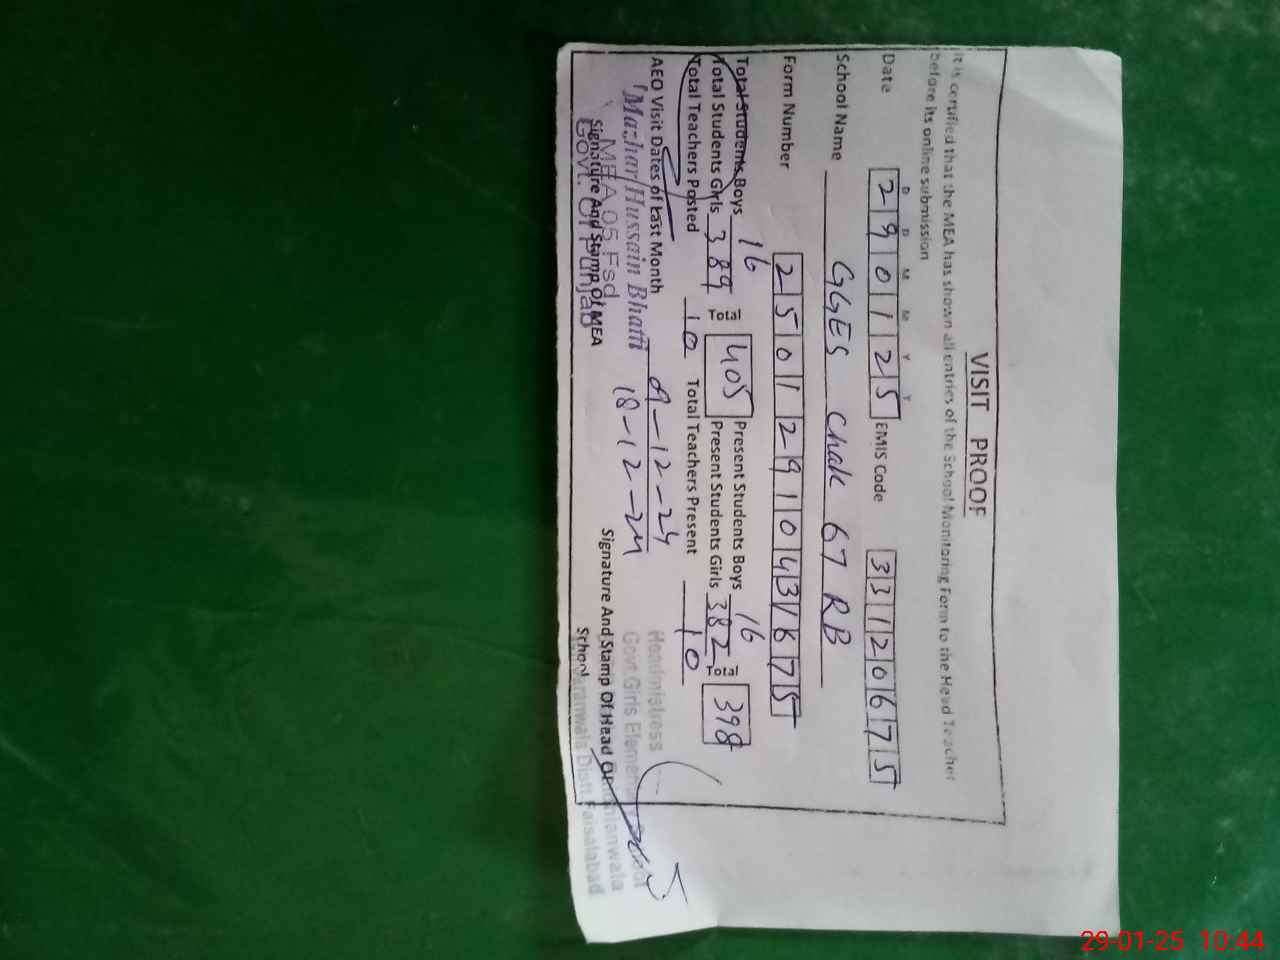 VISIT PROOF
It is certified that the MEA has shown all entries of the School Monitoring Form to the Head Teacher
before its online submission
D D M M Y Y
Date 2 9 0 1 2 5 EMIS Code 3 3 1 2 0 6 7 5
School Name GGES Chak 67 RB
Form Number 2 5 0 1 2 9 1 0 4 3 1 6 7 5
Total Students Boys 16 Present Students Boys 16
Total Students Girls 389 Total 405 Present Students Girls 382 Total 398
Total Teachers Posted 10 Total Teachers Present 10
AEO Visit Dates of Last Month 09-12-24
18-12-24
Mazhar Hussain Bhatti
MEA 05 Fsd
Govt. Of Punjab
Signature And Stamp Of MEA
Signature And Stamp Of Head Of
School
Headmistress
Govt Girls Elementary School
Jaranwala Distt Faisalabad
29-01-25 10:44